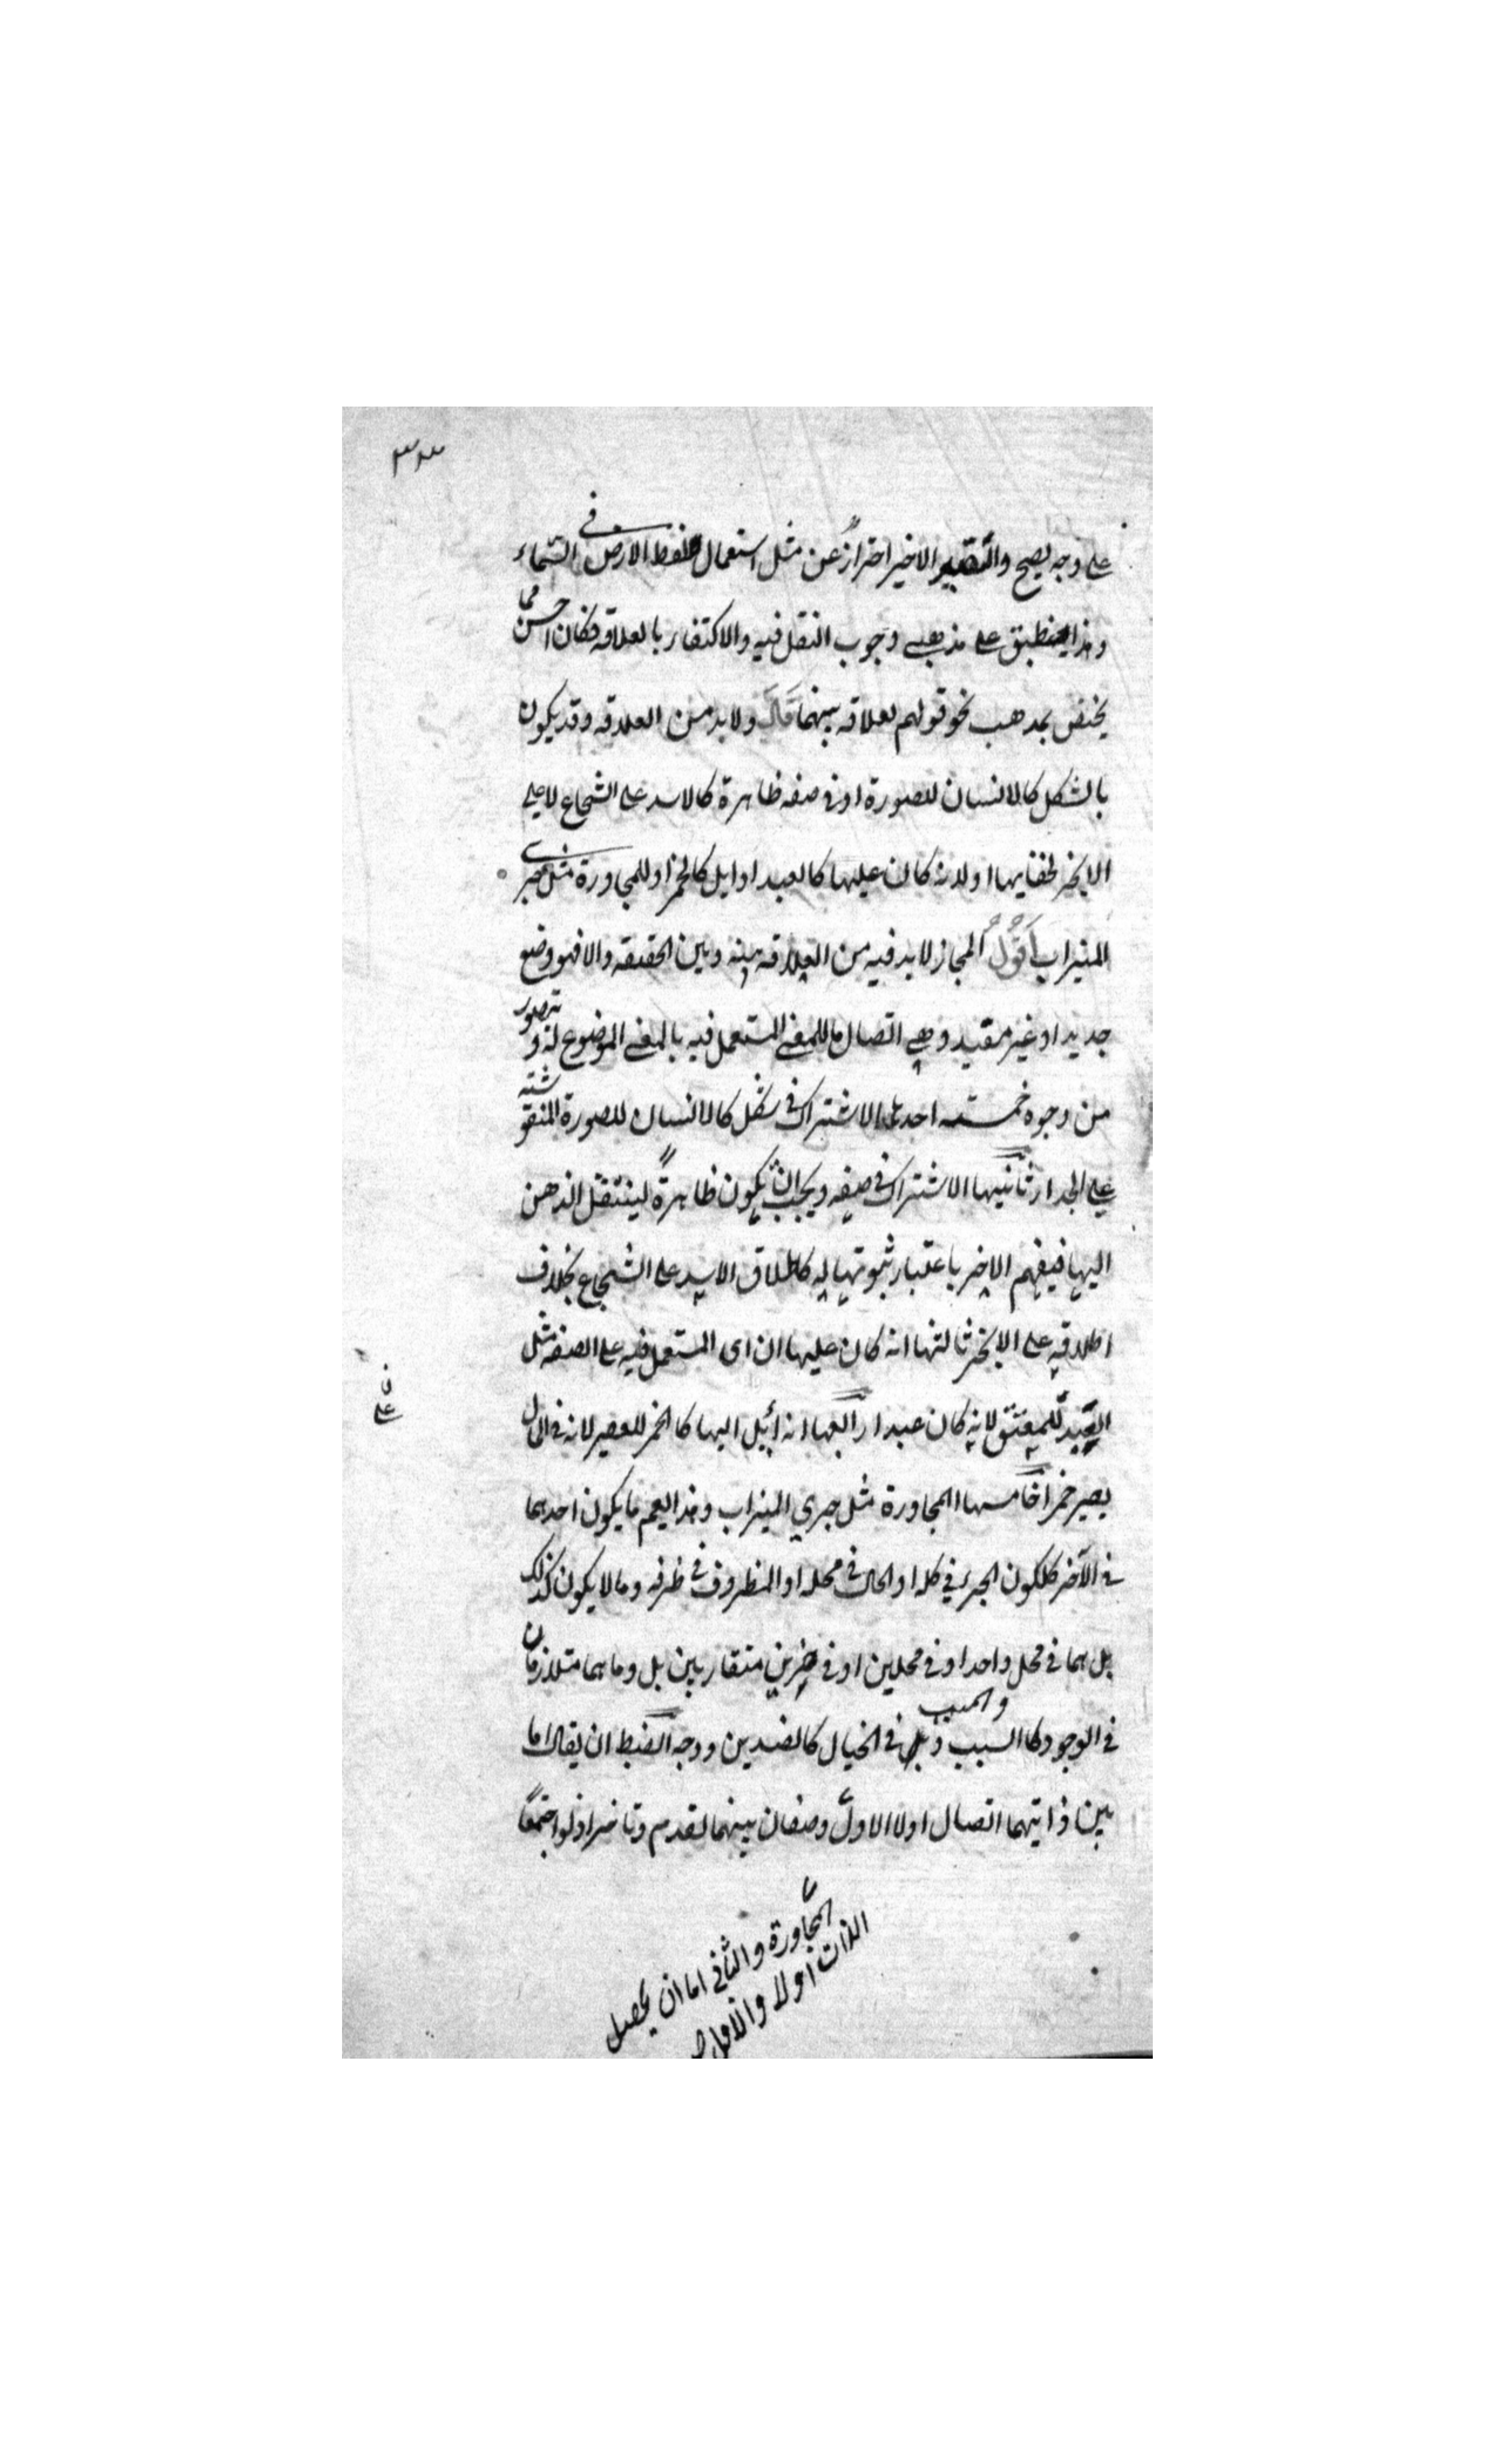 ٣٣
على وجه يصح والتقييد الاخير احتراز عن مثل استعمال لفظ الارض في السماء
وهذا ينطبق على مذهبي وجوب النقل فيه والاكتفاء بالعلاقة فكان احسن مما
يختص بمذهب نحو قولهم لعلاقه بينهما قال ولا بد من العلاقه وقد يكون
بالشكل كالانسان للصورة او في صفه ظاهرة كالاسد على الشجاع لا على
الابخر لخفايها او لانه كان عليها كالعبد او ايل كالخمر او للمجاورة مثل جرى
الميزاب اقول المجاز لا بد فيه من العلاقه بينه وبين الحقيقه والا فهو وضع
جديد او غير مقيد وهي اتصال ما للمعنى المستعمل فيه بالمعنى الموضوع له ويتصور
من وجوه خمسه احدها الاشتراك في شكل كالانسان للصورة المنقوشة
على الجدار ثانيها الاشتراك في صفه ويجب ان يكون ظاهرة لينتقل الذهن
اليها فيفهم الاخر باعتبار ثبوتها له كاطلاق الاسد على الشجاع بخلاف
اطلاقه على الابخر ثالثها انه كان عليها ان اى المستعمل فيه على الصفه مثل
العبد للمعتق لانه كان عبدا رابعها انه ايل اليها كالخمر للعصير لانه في المال
يصير خمرا خامسها المجاورة مثل جري الميزاب وهذا يعم ما يكون احدهما
في الآخر ككون الجزء في كله او الحال في محله او المظروف في ظرفه وما لا يكون كذلك
بل هما في محل واحد او في محلين او في حيزين متقاربين بل وما هما متلازمان
في الوجود كالسبب والمسبب بل في الخيال كالضدين ووجه الضبط ان يقال اما
بين ذاتيهما اتصال او لا الاول وصفان بينهما تقدم وتاخر اذ لو اجتمعا
المجاورة والثاني اما ان يحصل
الذات او لا والاول